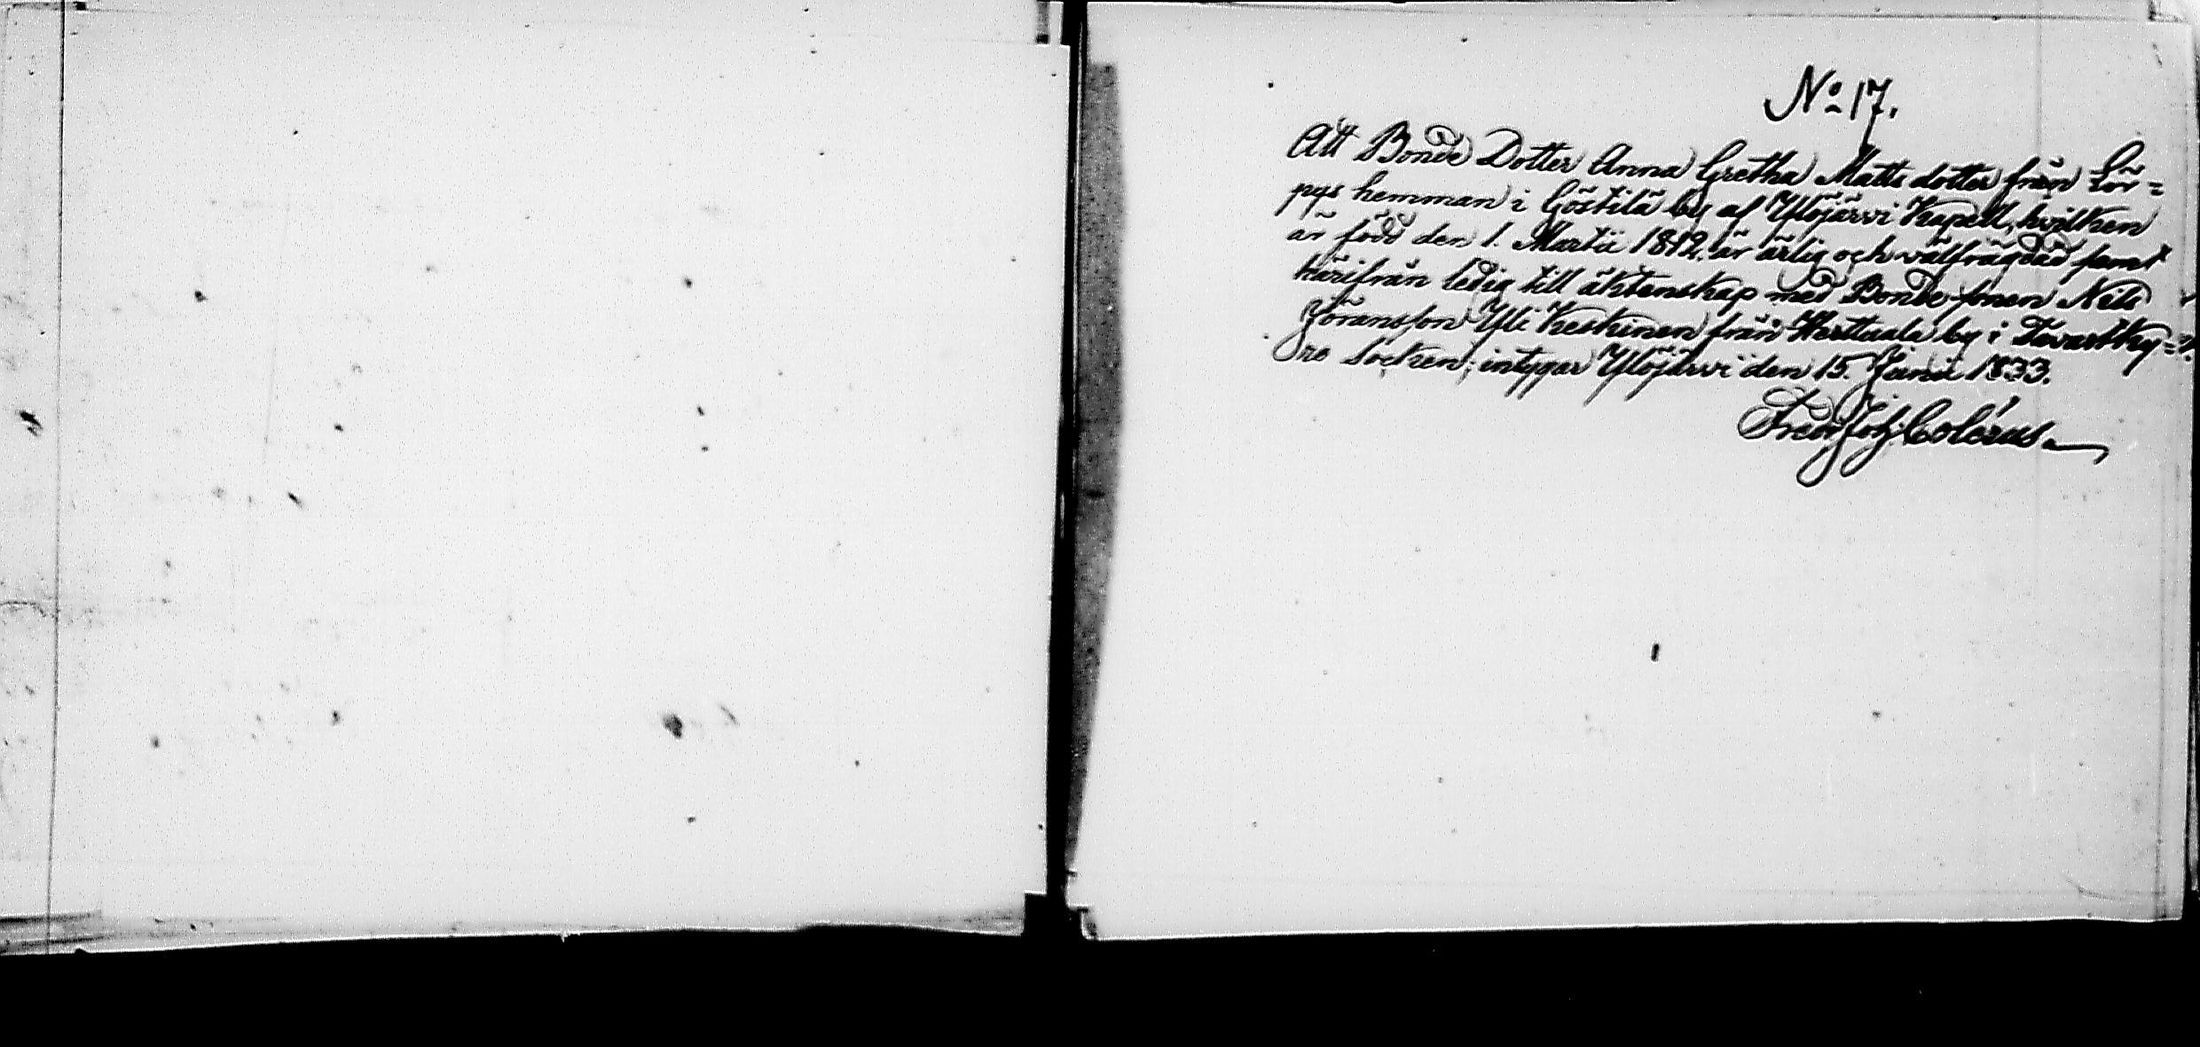 No 17.
Att Bonde Dotter Anna Gretha Matts dotter från Lör=
pys hemman i Göstilä by af Ylöjärvi Kapell, hvilken
är född den 1. Martii 1812. är ärlig och välfrägdad samt
härifrån ledig till äktenskap med Bonde sonen Nils
Jöransson Yli Keskinen från Herttuala by i Tavastky=
ro Socken; intygar Ylöjärvi den 15. Junii 1833.
Fredr Joh. Colérus.